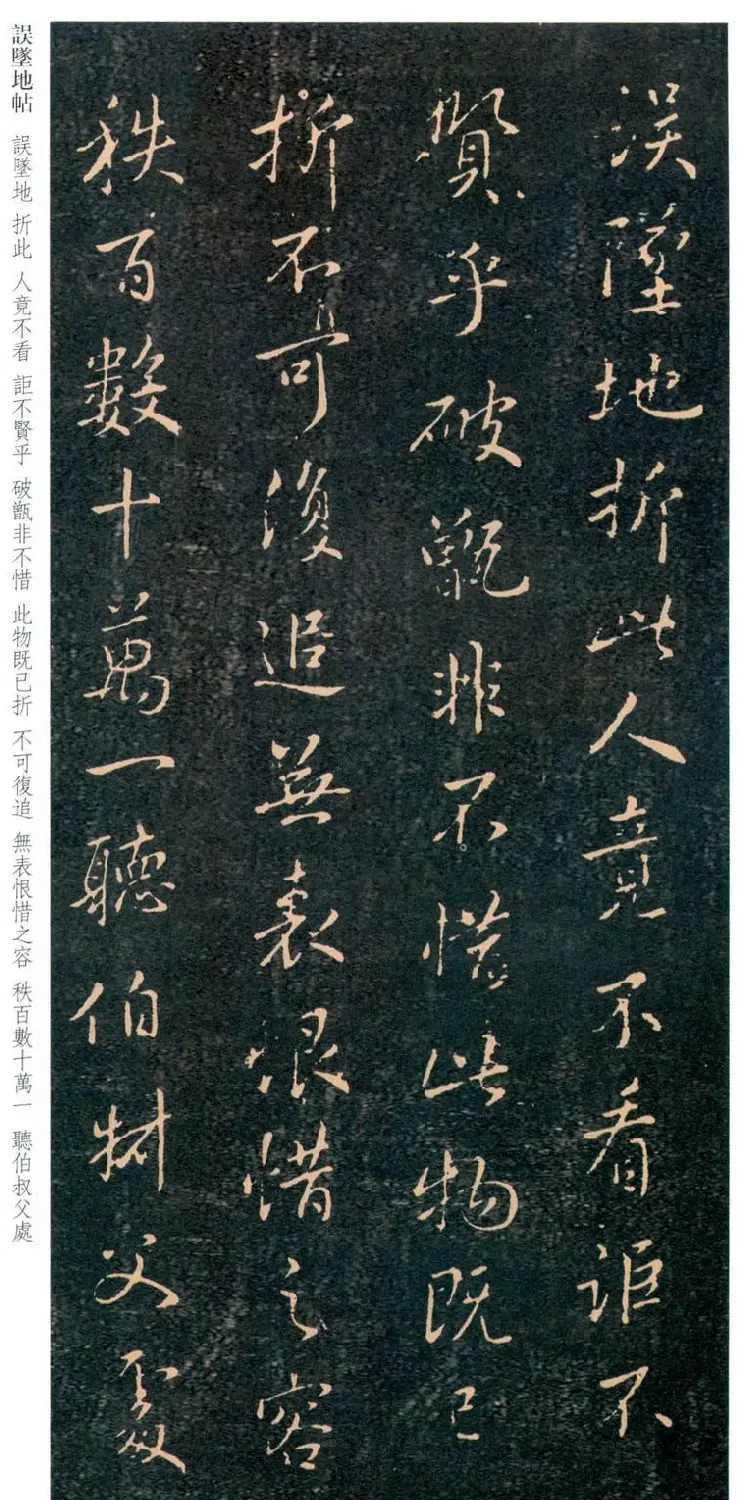 誤墜地折此人竟不看詎不
賢乎破甑非不惜此物既已
折不可復追無表恨惜之容
秩百數十萬一聽伯叔父處
誤墜地帖 誤墜地 折此 人竟不看 詎不賢乎 破甑非不惜 此物既已折 不可復追 無表恨惜之容 秩百數十萬一 聽伯叔父處